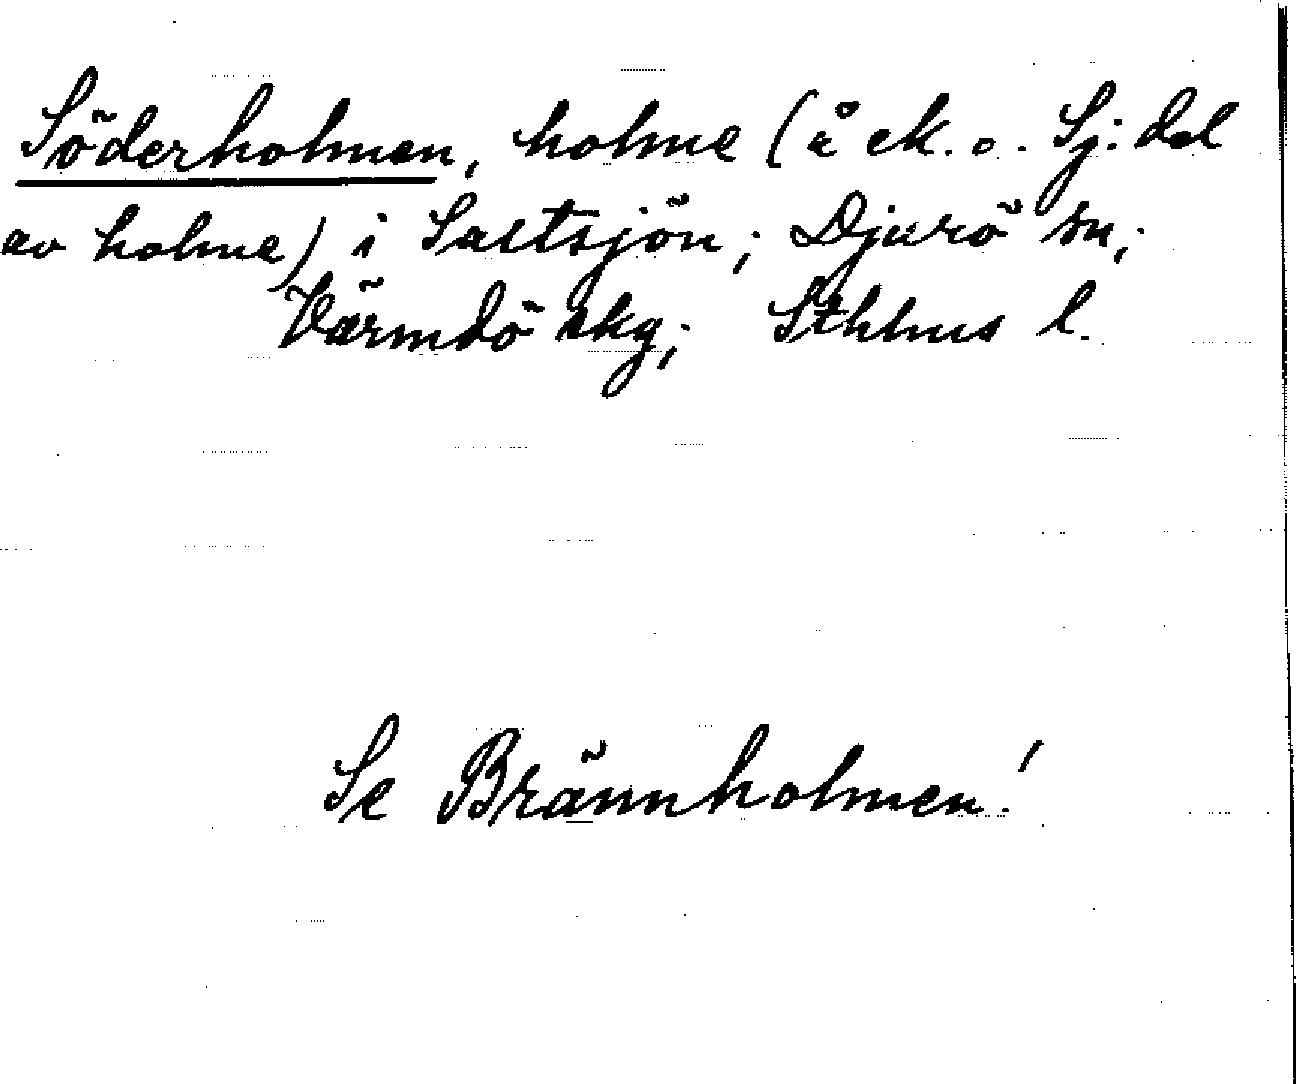 Söderholmen, holme (å ek. o. Sj: del
av holme) i Saltsjön; Djurö sn;
Värmdö skg; Sthlms l.
Se Brännholmen!